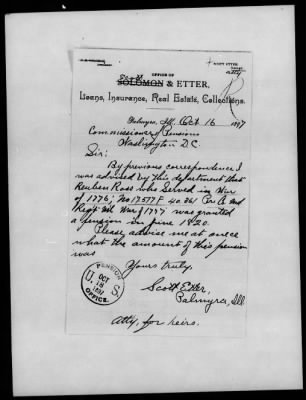 SCOTT ETTER,
OFFICE OF
SOLOMON & ETTER,
Loans, Insurance, Real Estate, Collections.
Palmyra, Ill. Oct 16 1897
Commissioner of Pensions
Washington D.C.
Sir:
By previous correspondence I
was advised by this department that
Reuben Ross who served in War
of 1776; No 17577 F 40361 Cer. A. and
Reg't Mil War/1777 was granted
a pension in June 1820.
Please advise me at once
what the amount of this pension
was
Yours truly,
Scott Etter,
Palmyra, Ill.
PENSION
U. S.
OCT
18
1897
OFFICE.
Atty. for heirs.